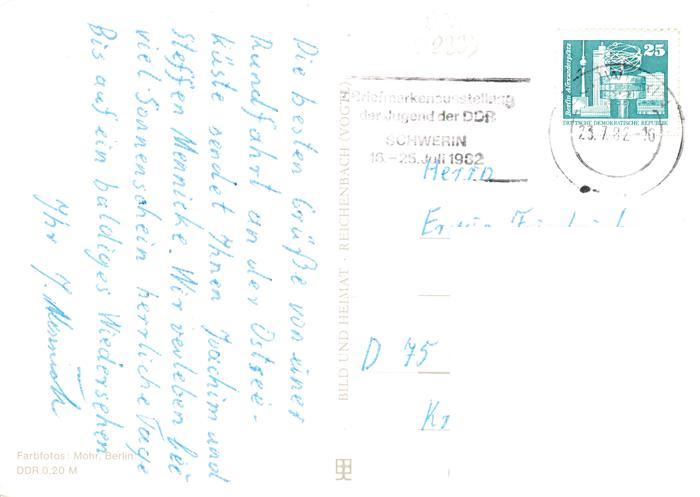 Die besten Grüße von einer
Rundfahrt an der Ostsee-
küste sendet Ihnen Joachim und
Steffen Mennicke. Wir verleben bei
viel Sonnenschein herrliche Tage
Bis auf ein baldiges Wiedersehen
Ihr J.
Farbfotos: Mohr, Berlin
DDR 0,20 M
BILD UND HEIMAT · REICHENBACH (VOGTL)
Briefmarkenausstellung
der Jugend der DDR
SCHWERIN
16.-25. Juli 1982
25
Berlin Alexanderplatz
DEUTSCHE DEMOKRATISCHE REPUBLIK
23.7.82-16
Herrn
D 75